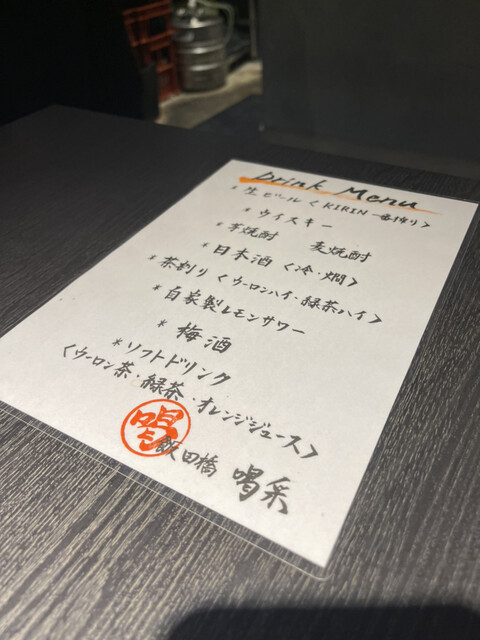 Drink Menu
* 生ビール〈KIRIN 一番搾り〉
* ウイスキー
* 芋焼酎 麦焼酎
* 日本酒〈冷・燗〉
* 茶割り〈ウーロンハイ・緑茶ハイ〉
* 自家製レモンサワー
* 梅酒
* ソフトドリンク
〈ウーロン茶・緑茶・オレンジジュース〉
飯田橋 喝采